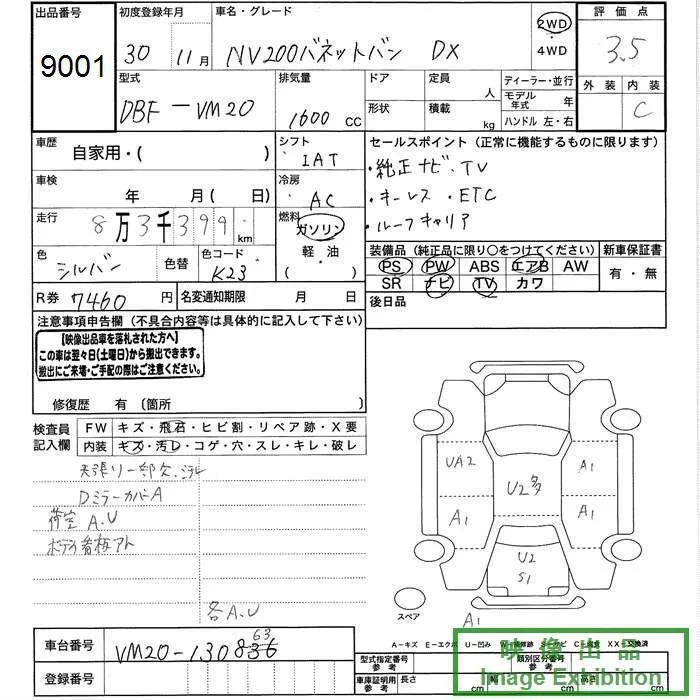 出品番号
9001
初度登録年月
30 11月
車名・グレード
NV200バネットバン DX
2WD
・4WD
評価点
3.5
外装 内装
C
型式
DBF-VM20
排気量
1600 CC
ドア
定員 人
形状
積載 kg
ディーラー・並行
モデル年式 年
ハンドル 左・右
車歴
自家用・( )
シフト
IAT
セールスポイント (正常に機能するものに限ります)
・純正ナビ、TV
・キーレス ・ETC
・ルーフキャリア
車検
年 月( 日)
冷房
AC
走行
8万3千399 km
燃料
ガソリン
軽・油
( )
色
シルバン
色替
色コード
K23
装備品 (純正品に限り○をつけてください)
PS PW ABS エアB AW
SR ナビ TV カワ
新車保証書
有・無
R券 7460 円
名変通知期限 月 日
後日品
注意事項申告欄 (不具合内容等は具体的に記入して下さい)
【映像出品車を落札された方へ】
この車は翌々日(土曜日)から搬出できます。
搬出にご来場・ご手配の際はご注意ください。
修復歴 有 〔箇所 〕
検査員記入欄
FW キズ・飛石・ヒビ割・リペア跡・X要
内装 キズ・汚レ・コゲ・穴・スレ・キレ・破レ
天張リ一部欠、シミ
DミラーカバーA
荷室 A.U
ボディ看板アト
各A.U
UA2
A1
U2多
A1
A1
U2
S1
A1
スペア
車台番号
VM20-130836
63
登録番号
A-キズ E-エクボ U-凹み
XX-交換済
型式指定番号
参考
類別区分番号
参考
車庫証明用
参考
長さ cm
幅 cm
高さ cm
映像出品
Image Exhibition